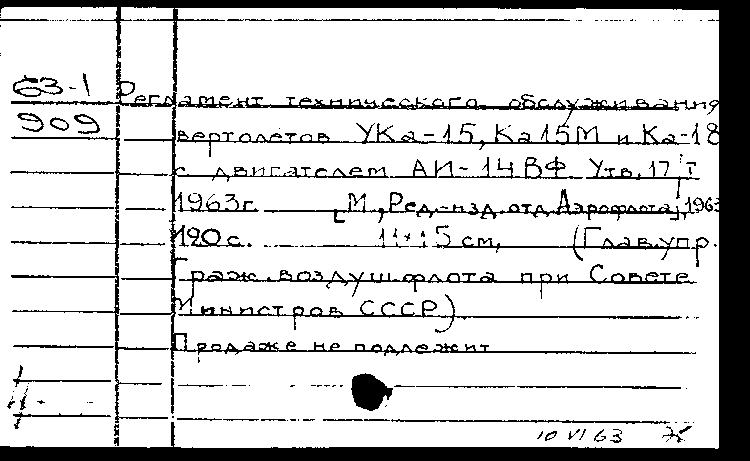 63-1
909
Регламент технического обслуживания
вертолетов УКа-15, Ка 15М и Ка-18
с двигателем АИ-14ВФ. Утв. 17/I
1963г. [М., Ред.-изд. отд. Аэрофлота], 1963
120 с. 11×15 см, (Глав. упр.
Граж. воздуш. флота при Совете
Министров СССР).
Продаже не подлежит
10 VI 63